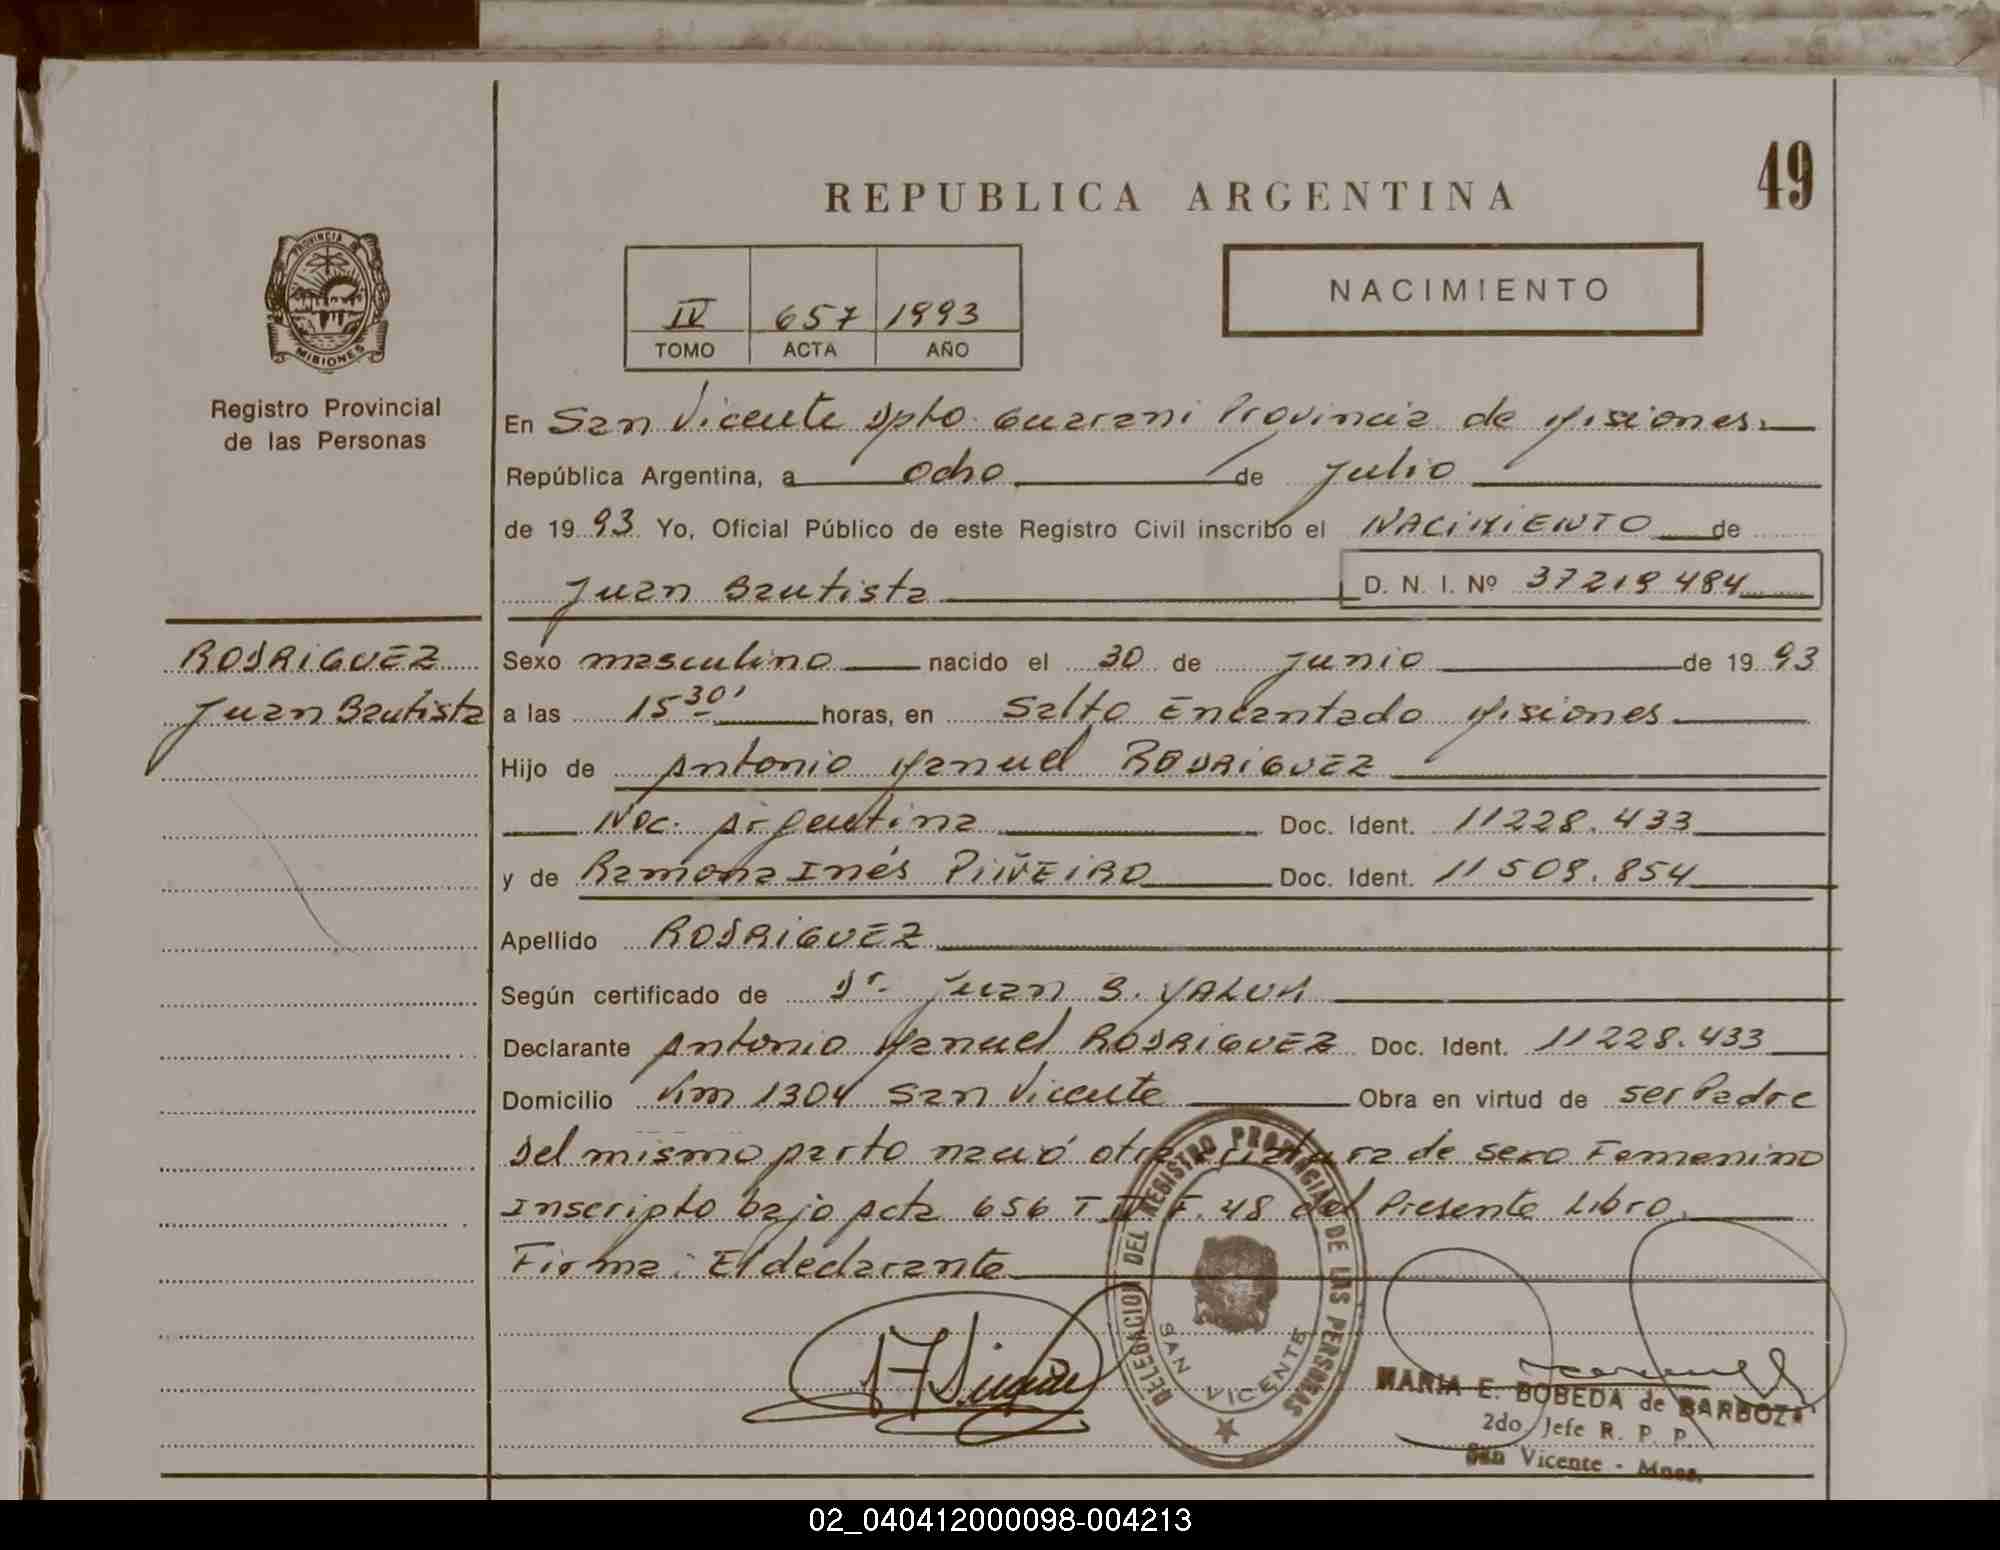 49
REPUBLICA ARGENTINA
NACIMIENTO
PROVINCIA DE
MISIONES
Registro Provincial
de las Personas
IV 657 1993
TOMO ACTA AÑO
En San Vicente Dpto. Guarani Provincia de Misiones.
República Argentina, a ocho de Julio
de 1993 Yo, Oficial Público de este Registro Civil inscribo el NACIMIENTO de
Juan Bautista D. N. I. Nº 37219484
RODRIGUEZ
Juan Bautista
Sexo masculino nacido el 30 de Junio de 1993
a las 15 30' horas, en Salto Encantado Misiones
Hijo de Antonio Manuel RODRIGUEZ
Nac. Argentina Doc. Ident. 11228.433
y de Ramona Inés PIÑEIRO Doc. Ident. 11509.854
Apellido RODRIGUEZ
Según certificado de Dr. Juan B.
Declarante Antonio Manuel RODRIGUEZ Doc. Ident. 11228.433
Domicilio Km 1304 San Vicente Obra en virtud de ser Padre
Del mismo parto nació otra criatura de sexo Femenino
Inscripto bajo Acta 656 T IV F. 48 del Presente Libro.
Firma: El declarante
DELEGACION DEL REGISTRO PROVINCIAL DE LAS PERSONAS
SAN VICENTE
MARIA E. BOBEDA de BARBOZA
2do. Jefe R. P. P.
San Vicente - Mnes.
02_040412000098-004213